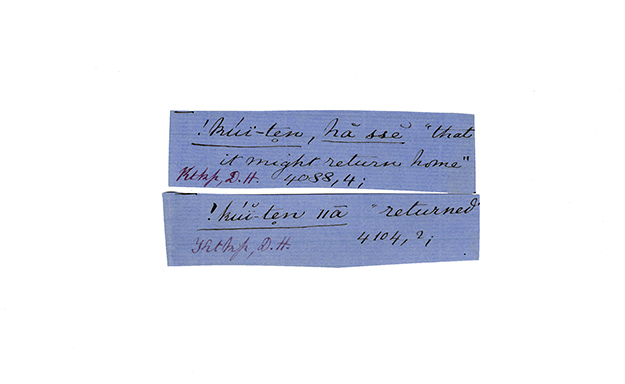 !kúï-tẹn, hā ssĕ "that
it might return home"
Ktkp, D.H. 4088, 4;
!kúï-tẹn ııā "returned"
Ktkp, D.H. 4104,